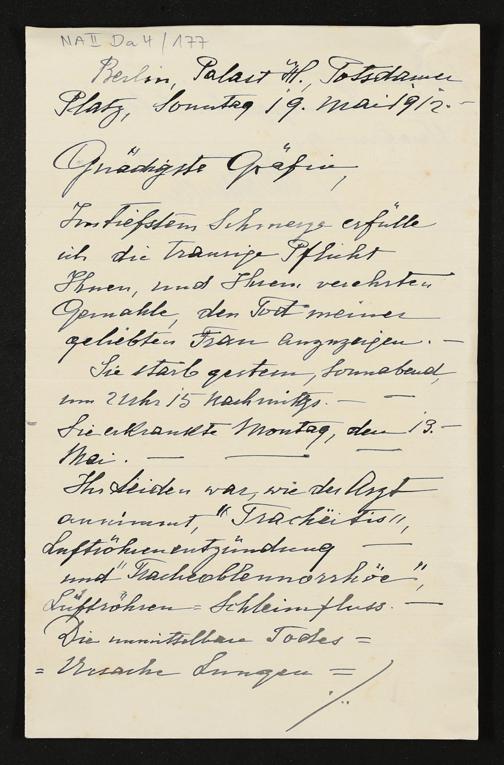 NA II Da 4 / 177
Berlin, Palast H., Potsdamer
Platz, Sonntag 19. Mai 1912. –
Gnädigste Gräfin,
Im tiefstem Schmerze erfülle
ich die traurige Pflicht
Ihnen, und Ihrem verehrten
Gemahle, den Tod meiner
geliebten Frau anzuzeigen. –
Sie starb gestern, Sonnabend,
um 2 Uhr 15 Nachmittgs. – –
Sie erkrankte Montag, den 13. –
Mai. – – –
Ihr Leiden war, wie der Arzt
annimmt, "Tracheitis",
Luftröhrenentzündung –
und "Tracheoblennorrhöe",
Luftröhren = Schleimfluss. –
Die unmittelbare Todes =
= Ursache Lungen =
./.